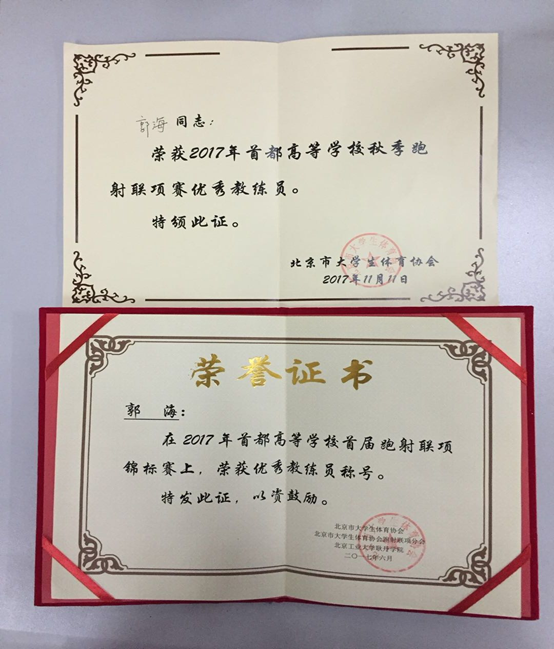 郭海 同志：
荣获2017年首都高等学校秋季跑
射联项赛优秀教练员。
特颁此证。
北京市大学生体育协会
2017年11月11日
荣誉证书
郭 海：
在2017年首都高等学校首届跑射联项
锦标赛上，荣获优秀教练员称号。
特发此证，以资鼓励。
北京市大学生体育协会
北京市大学生体育协会跑射联项分会
北京工业大学耿丹学院
二〇一七年六月